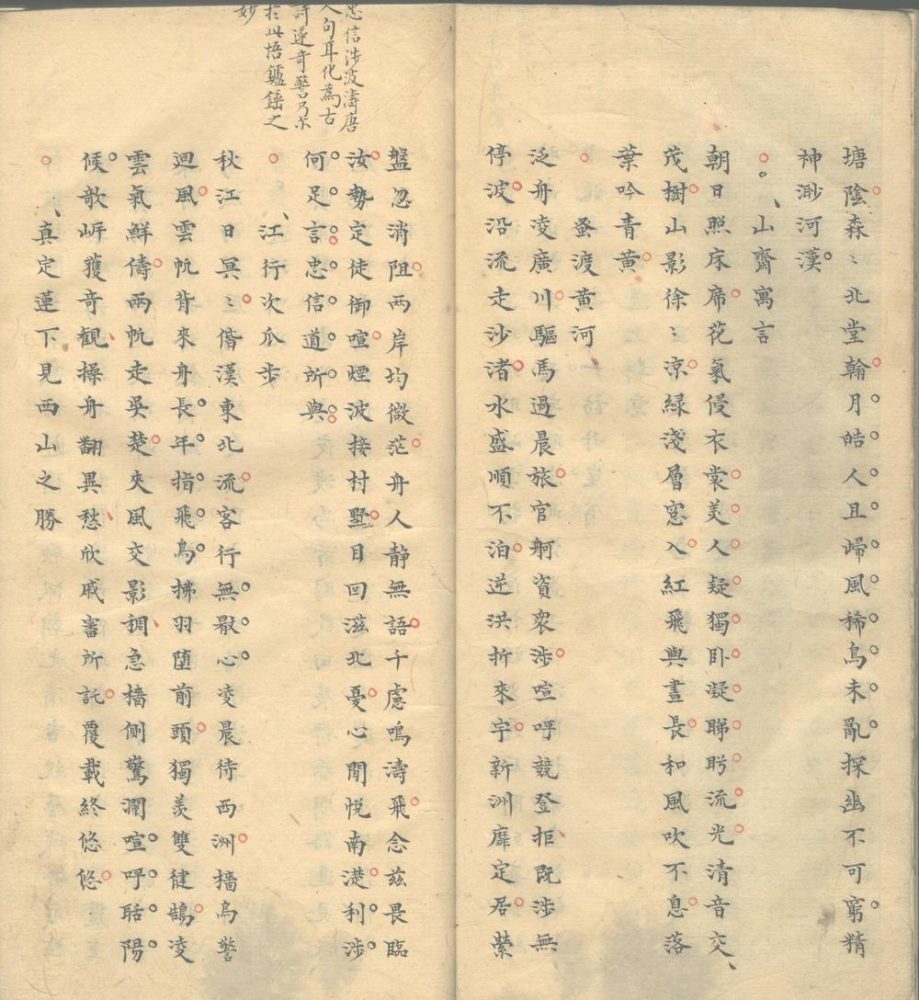 塘陰森〻北堂翰月皓人且歸風稀鳥未亂探幽不可窮精
神渺河漢
山齋寓言
朝日照床席花氣侵衣裳美人疑獨卧凝睇眄流光清音交
茂樹山影徐〻涼綠淺層窓入紅飛與晝長和風吹不息落
葉吟青黄
蚤渡黄河
泛舟凌廣川驅馬過晨旅官舸資衆涉喧呼競登拒既涉無
停波沿流走沙渚水盛順不泊逆洪折來宇新洲靡定居縈
忠信涉波濤唐
人句耳化為古
詩遂奇警乃尔
於此悟鑪錘之
妙
盤忽消阻兩岸均微茫舟人静無語千慮鳴濤飛念兹畏臨
汝勢定徒御喧煙波接村墅日回滋北憂心閒悦南濋利涉
何足言忠信道所與
江行次爪步
秋江日冥〻偕漢東北流客行無歇心凌晨待西洲檣烏警
迴風雲帆背來舟長年指飛鳥拂羽墮前頭獨羡雙健鵠凌
雲氣鮮儔兩帆走吳楚夾風交影調急檣側驚瀾喧呼聒陽
候歌㟁獲奇観操舟翻異愁欣戚審所託覆載終悠悠
真定蓮下見西山之勝